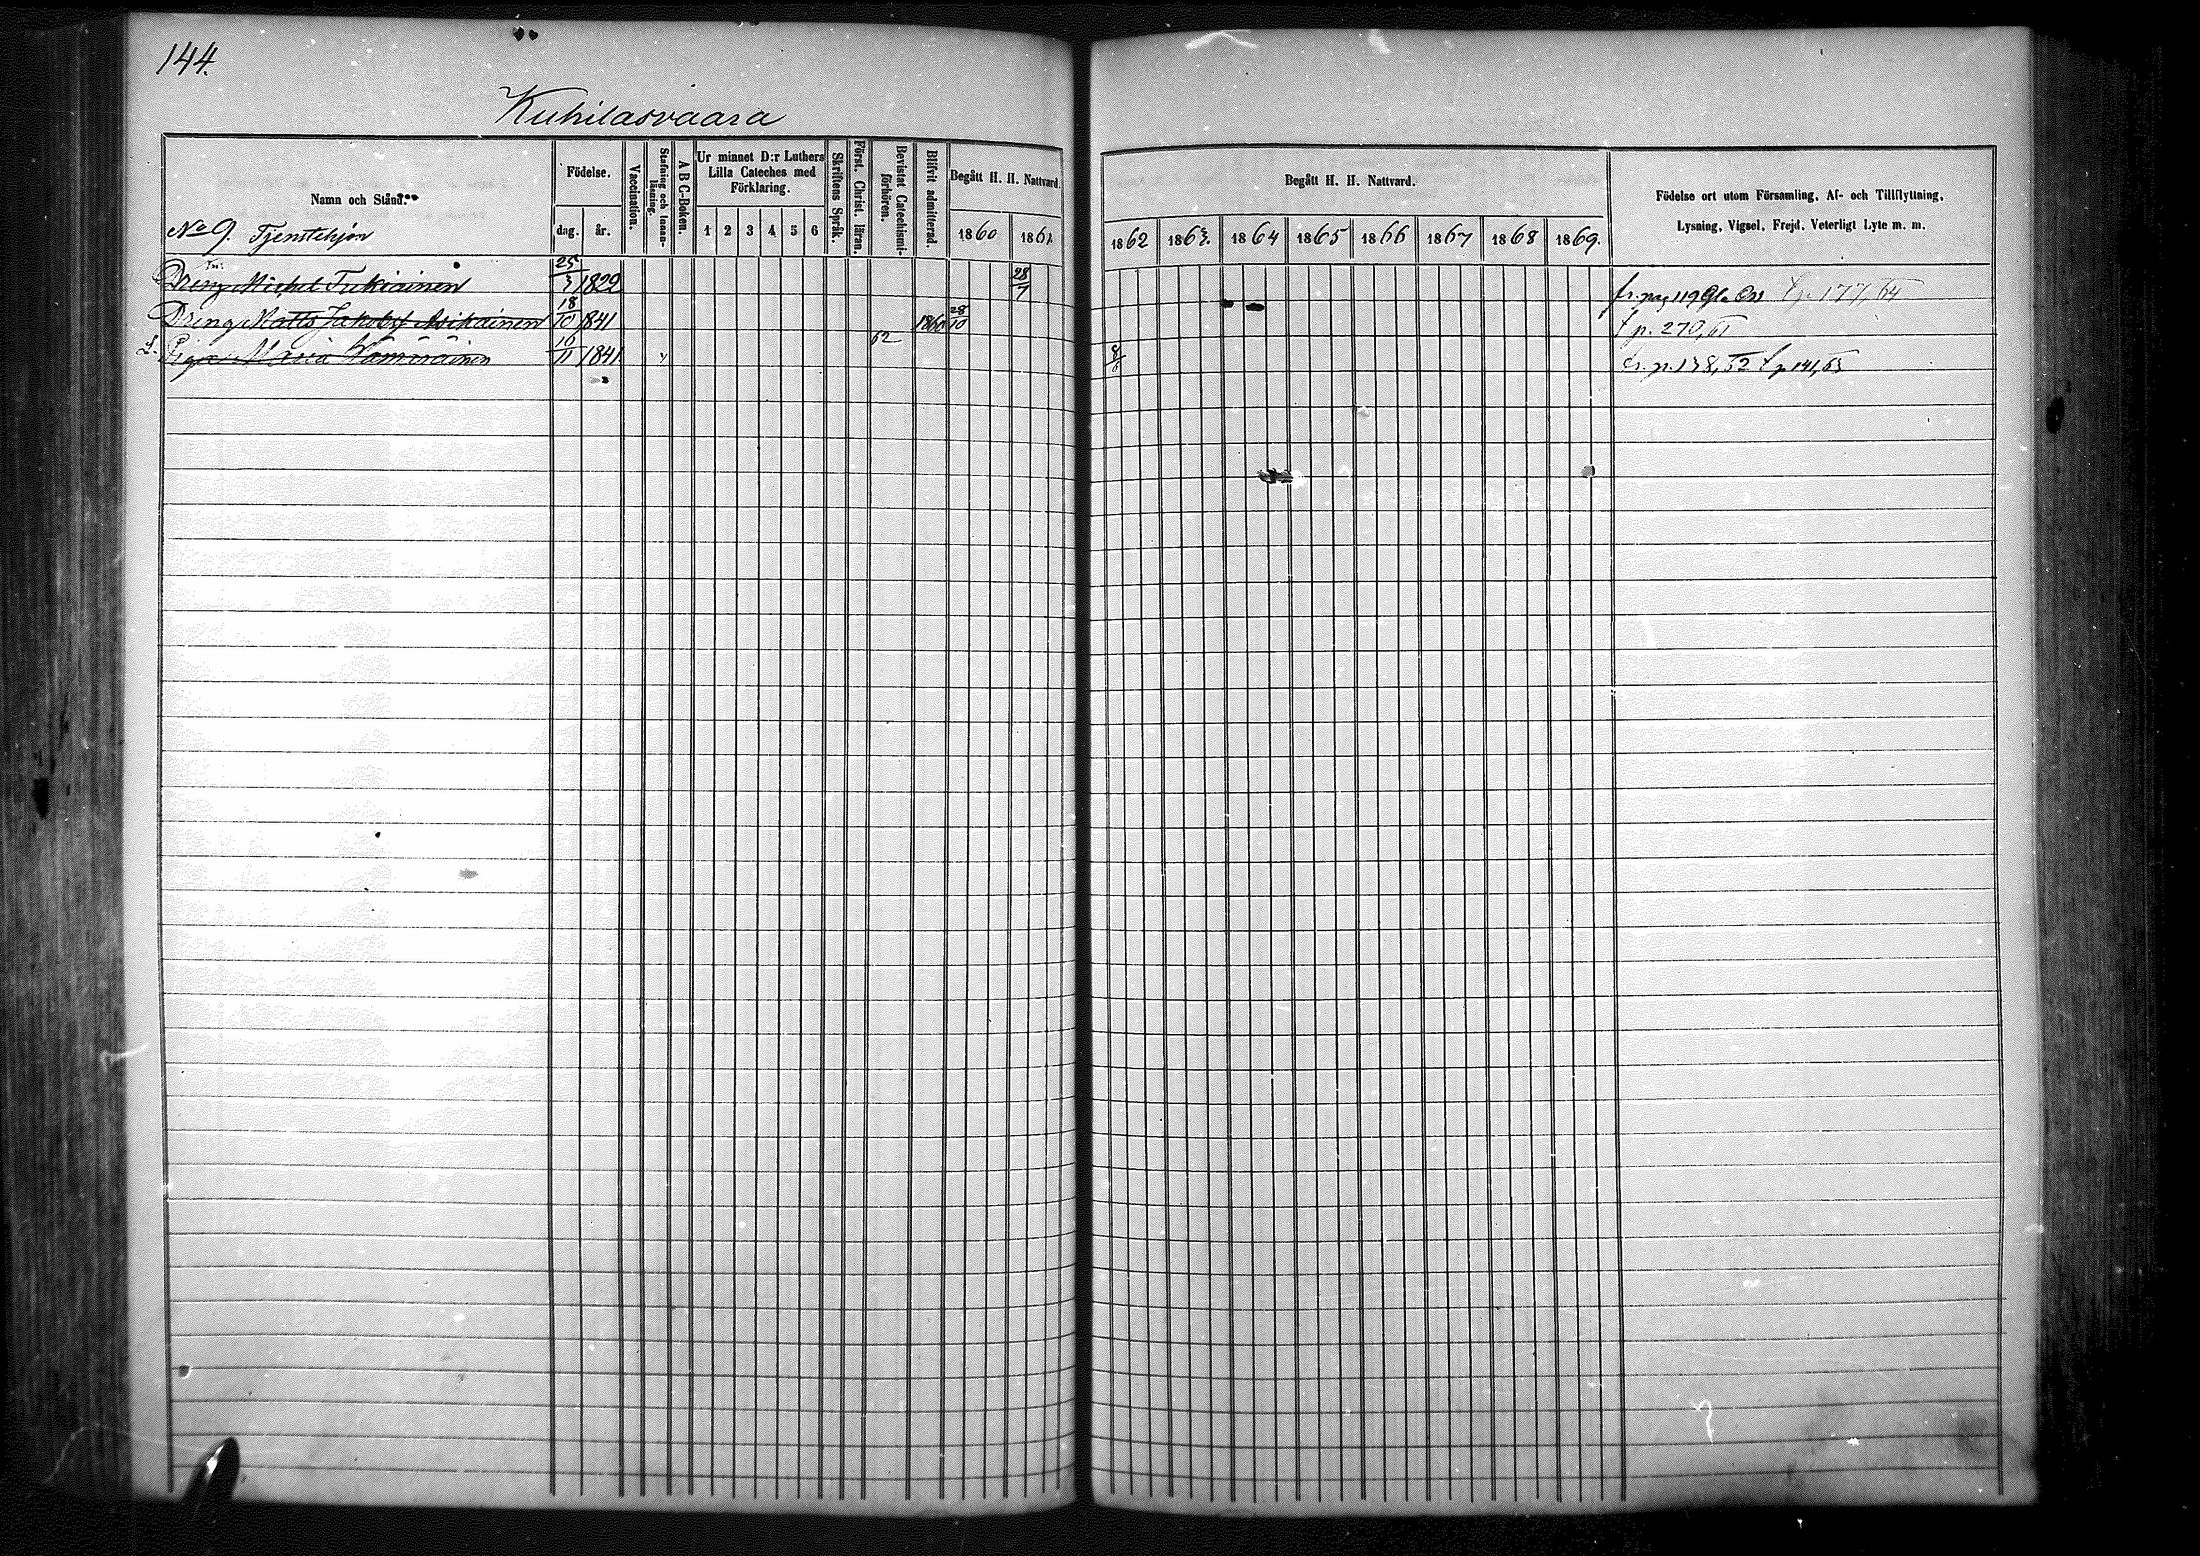 144.
Kuhilasvaara
Namn och Stånd.
No 9. Tjenstehjon
Födelse.
dag. år.
Vaccination.
Stafning och Innanläsning.
A B C-Boken.
Ur minnet D:r Luthers Lilla Cateches med Förklaring.
1 2 3 4 5 6
Skriftens Språk.
Först. Christ. läran.
Bevistat Catechismiförhören.
Blifvit admitterad.
Begått H. H. Nattvard.
1860 1861
Begått H. H. Nattvard.
1862 1863. 1864 1865 1866 1867 1868 1869.
Födelse ort utom Församling, Af- och Tillflyttning, Lysning, Vigsel, Frejd, Veterligt Lyte m. m.
Dreng Michel Tukiainen 25/3 1822 28/7 fr. pag 119 Gla t p. 177, 64
Dreng Matts Jakobsf Asikainen 18/10 1841 1860 28/10 t p. 270, 61
Piga Maria 16/11 1841 62 8/6 fr. p. 138, 62 t p 141, 63